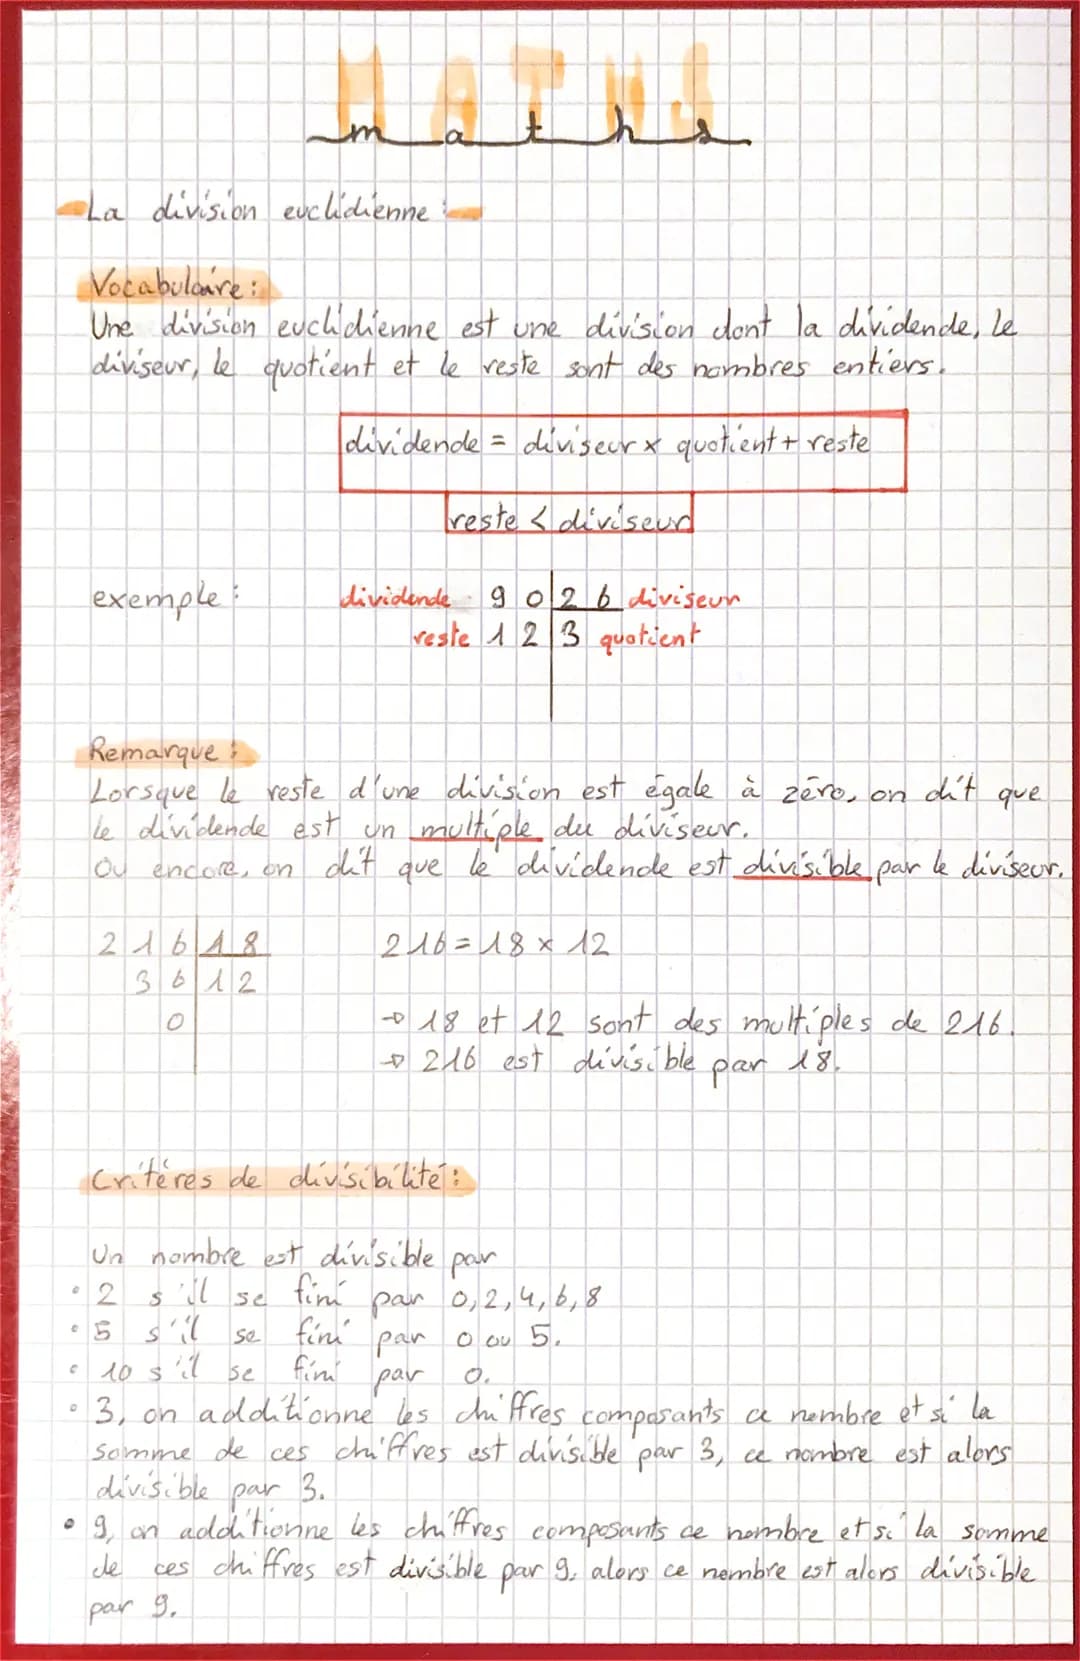 MATHS
maths
La division euclidienne :
Vocabulaire :
Une division euclidienne est une division dont la dividende, le
diviseur, le quotient et le reste sont des nombres entiers.
dividende = diviseur x quotient + reste
reste < diviseur
exemple :
dividende 90 26 diviseur
reste 12 3 quotient
Remarque :
Lorsque le reste d'une division est égale à zéro, on dit que
le dividende est un multiple du diviseur.
Ou encore, on dit que le dividende est divisible par le diviseur.
216 18 216 = 18 x 12
36 12
0 → 18 et 12 sont des multiples de 216.
→ 216 est divisible par 18.
Critères de divisibilité :
Un nombre est divisible par
• 2 s'il se fini par 0, 2, 4, 6, 8
• 5 s'il se fini par 0 ou 5.
• 10 s'il se fini par 0.
• 3, on additionne les chiffres composants ce nombre et si la
somme de ces chiffres est divisible par 3, ce nombre est alors
divisible par 3.
• 9, on additionne les chiffres composants ce nombre et si la somme
de ces chiffres est divisible par 9, alors ce nombre est alors divisible
par 9.